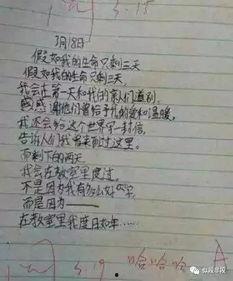 3.15
3月18日
假如我的生命只剩三天
假如我的生命只剩三天
我会在第一天和我的亲人们道别,
感谢他们曾给予我的爱和温暖,
我还会给这个世界写一封信,
告诉人们我曾来到过这里。
而剩下的两天
我会在教室里度过。
不是因为我有多么好学
而是因为——
在教室里我度日如年……
3.19
哈哈哈